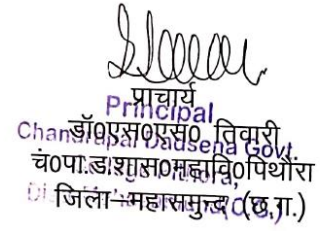 प्राचार्य
Principal
डॉ०एस०एस० तिवारी
Chandrapal Dadsena Govt.
चं०पा.ड.शास०महावि०पिथौरा
जिला–महासमुन्द (छ.ग.)